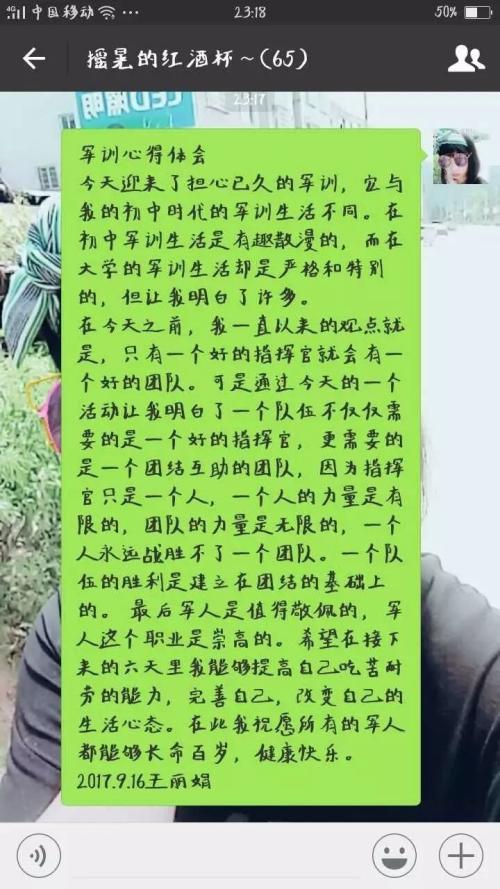 4G 中国移动 23:18 50%
摇晃的红酒杯~(65)
明照DEJ
23:17
军训心得体会
今天迎来了担心已久的军训，它与
我的初中时代的军训生活不同。在
初中军训生活是有趣散漫的，而在
大学的军训生活却是严格和特别
的，但让我明白了许多。
在今天之前，我一直以来的观点就
是，只有一个好的指挥官就会有一
个好的团队。可是通过今天的一个
活动让我明白了一个队伍不仅仅需
要的是一个好的指挥官，更需要的
是一个团结互助的团队，因为指挥
官只是一个人，一个人的力量是有
限的，团队的力量是无限的，一个
人永远战胜不了一个团队。一个队
伍的胜利是建立在团结的基础上
的。 最后军人是值得敬佩的，军
人这个职业是崇高的。希望在接下
来的六天里我能够提高自己吃苦耐
劳的能力，完善自己，改变自己的
生活心态。在此我祝愿所有的军人
都能够长命百岁，健康快乐。
2017.9.16王丽娟